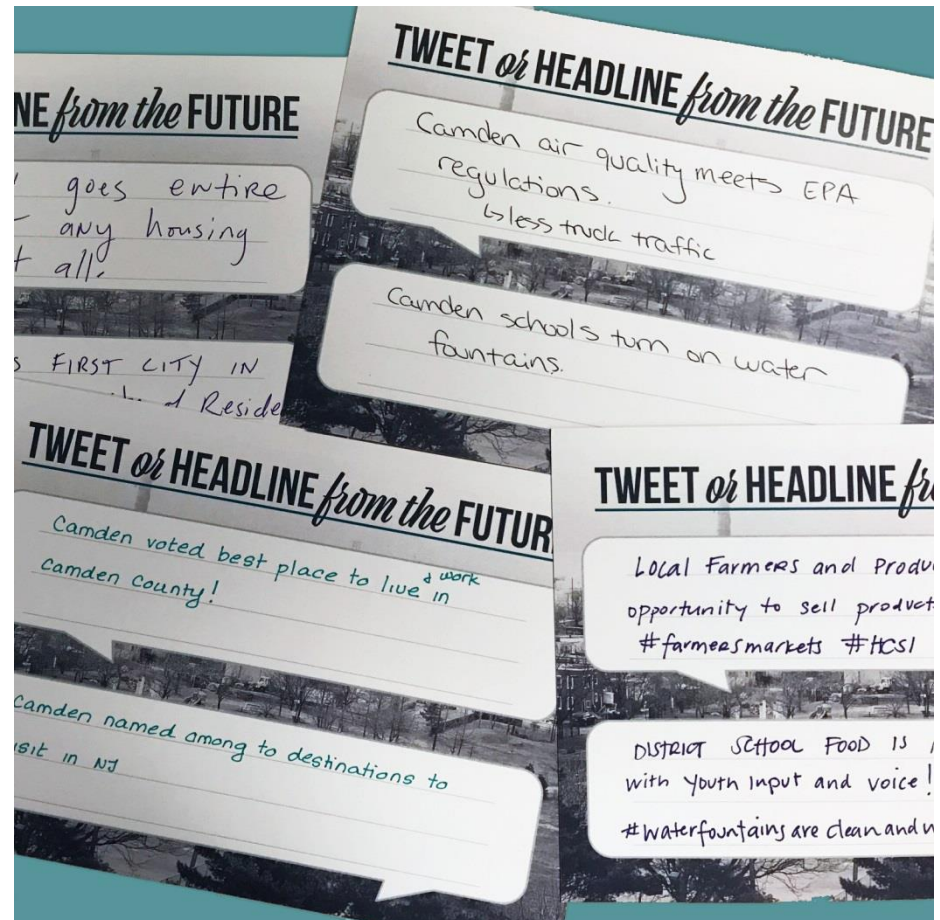 NE from the FUTURE
goes entire
any housing
all.
FIRST CITY IN
Reside
TWEET or HEADLINE from the FUTURE
Camden air quality meets EPA
regulations.
↳ less truck traffic
Camden schools turn on water
fountains.
TWEET or HEADLINE from the FUTUR
Camden voted best place to live & work in
Camden County!
Camden named among to destinations to
isit in NJ
TWEET or HEADLINE fr
Local Farmers and Produ
opportunity to sell product
#farmersmarkets #HCSI
DISTRICT SCHOOL FOOD IS
with Youth Input and voice!
#waterfountains are clean and w